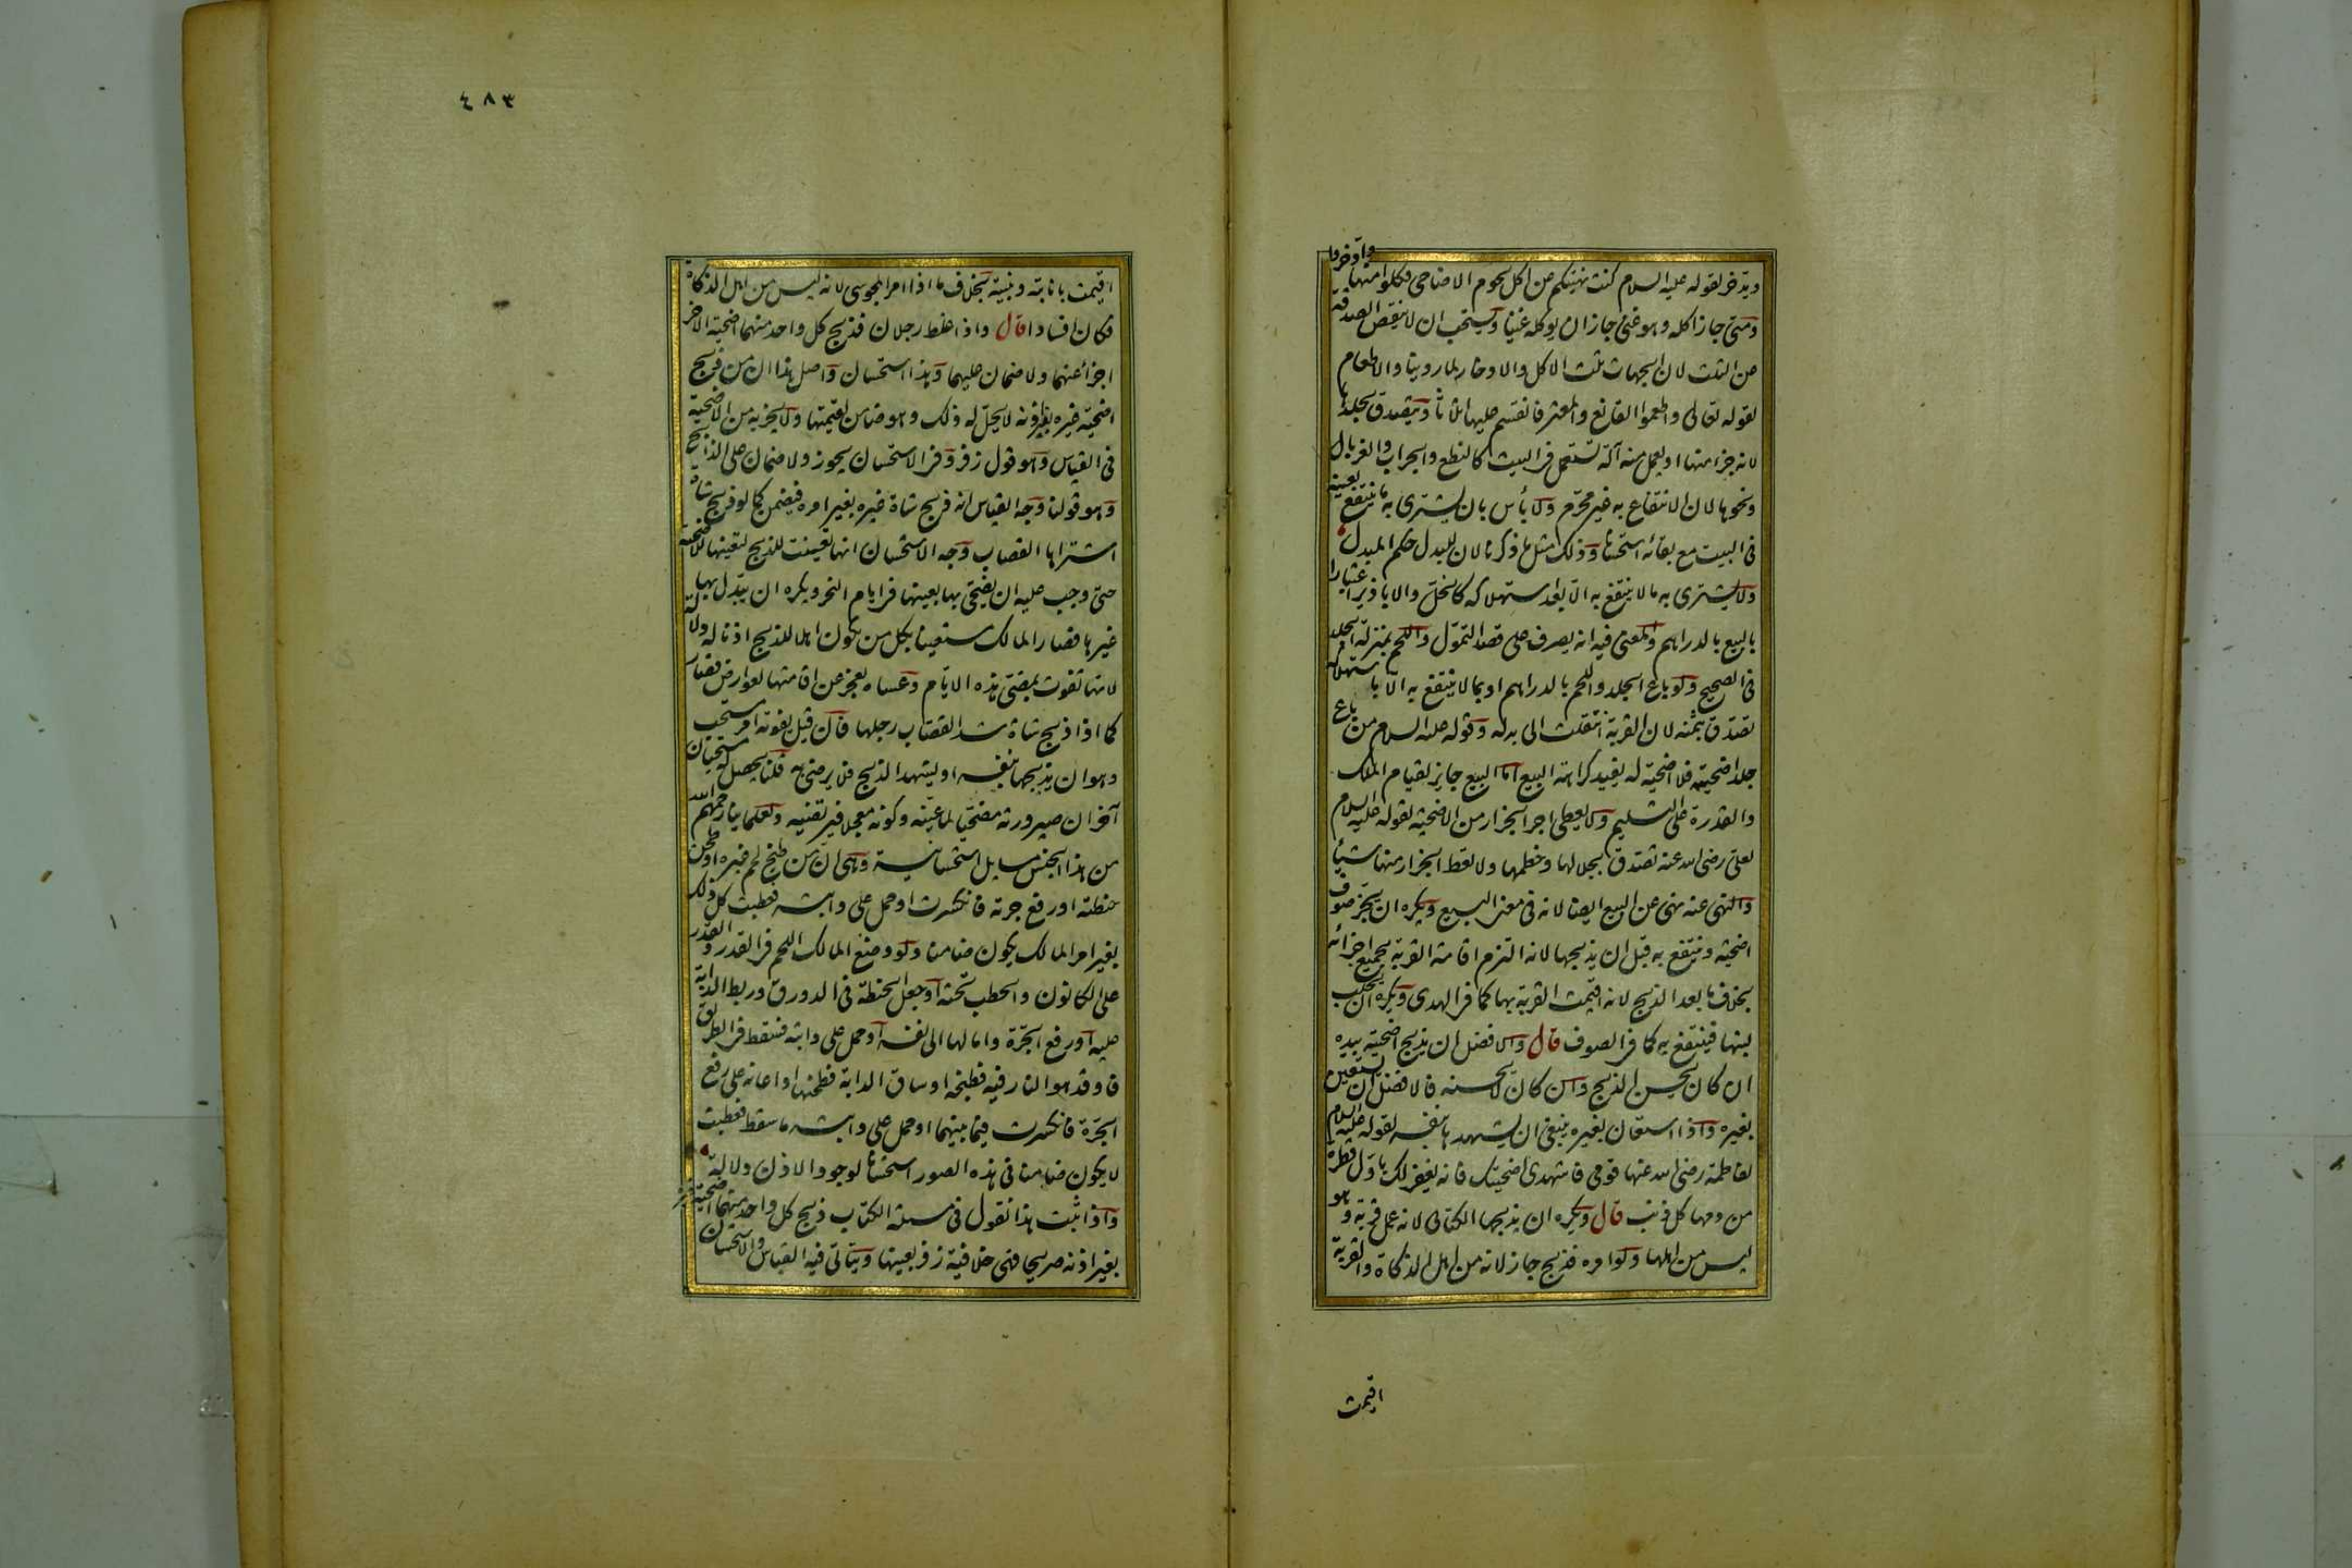 ويدّخر لقوله عليه السلام كنت نهيتكم عن اكل لحوم الاضاحى فكلوا منها وادّخروا
ومتى جاز اكله وهو غنى جاز ان يوكله غنيا ويستحب ان لا ينقص الصدقة
عن الثلث لان الجهات ثلث الاكل والادخار لما روينا والاطعام
لقوله تعالى واطعموا القانع والمعتر فانقسم عليها اثلاثا ويتصدق بجلدها
لانه جزء منها او يعمل منه آلة تستعمل فى البيت كالنطع والجراب والغربال
ونحوها لان الانتفاع به غير محرّم ولا بأس بان يشترى به ما ينتفع بعينه
فى البيت مع بقائه استحسانا وذلك مثل ما ذكرنا لان للبدل حكم المبدل
ولا يشترى به ما لا ينتفع به الّا بعد استهلاكه كالخلّ والابازير اعتبارا
بالبيع بالدراهم والمعنى فيه انه يصرف على قصد التموّل واللحم بمنزلة الجلد
فى الصحيح ولو باع الجلد واللحم بالدراهم او بما لا ينتفع به الّا باستهلاكه
تصدّق بثمنه لان القربة انتقلت الى بدله وقوله عليه السلام من باع
جلد اضحيته فلا اضحية له يفيد كراهة البيع امّا البيع جايز لقيام الملك
والقدرة على التسليم ولا يعطى اجر الجزار من الاضحية لقوله عليه السلام
لعلىّ رضى الله عنه تصدّق بجلالها وخطمها ولا تعط الجزار منها شيئا
والنهى عنه نهى عن البيع ايضا لانه فى معنى البيع ويكره ان يجزّ صوف
اضحيته وينتفع به قبل ان يذبحها لانه التزم اقامة القربة بجميع اجزائه
بخلاف ما بعد الذبح لانه اقيمت القربة بها كما فى الهدى ويكره ان يحلب
لبنها فينتفع به كما فى الصوف قال والافضل ان يذبح اضحيته بيده
ان كان يحسن الذبح وان كان لا يحسنه فالافضل ان يستعين
بغيره واذا استعان بغيره ينبغى ان يشهدها بنفسه لقوله عليه السلام
لفاطمة رضى الله عنها قومى فاشهدى اضحيتك فانه يغفر لك باوّل قطرة
من دمها كل ذنب قال ويكره ان يذبحها الكتابى لانه عمل قربة وهو
ليس من اهلها ولو امره فذبح جاز لانه من اهل الذكاة والقربة
اقيمت
٤٨٣
اقيمت بانابته ونيته بخلاف ما اذا امر المجوسى لانه ليس من اهل الذكاة
فكان افسادا قال واذا غلط رجلان فذبح كل واحد منهما اضحية الاخر
اجزأ عنهما ولا ضمان عليهما وهذا استحسان واصل هذا ان من ذبح
اضحية غيره بغير اذنه لا يحلّ له ذلك وهو ضامن لقيمتها ولا يجزيه من الاضحية
فى القياس وهو قول زفر وفى الاستحسان يجوز ولا ضمان على الذابح
وهو قولنا وجه القياس انه ذبح شاة غيره بغير امره فيضمن كما لو ذبح شاة
اشتراها القصاب وجه الاستحسان انها تعينت للذبح لتعينها للاضحية
حتى وجب عليه ان يضحّى بها بعينها فى ايام النحر ويكره ان يبدّل بها
غيرها فصار المالك مستعينا بكل من يكون اهلا للذبح اذنا له دلالة
لانها تفوت بمضىّ هذه الايّام وعساه يعجز عن اقامتها لعوارض فصار
كما اذا ذبح شاة شد القصاب رجلها فان قيل يفوته امر مستحب
وهو ان يذبحها بنفسه او يشهد الذبح فلا يرضى به قلنا يحصل له مستحبان
آخران صيرورته مضحّيا لما عيّنه وكونه معجلا فيرتضيه ولعلمائنا رحمهم الله
من هذا الجنس مسايل استحسانية وهى انّ من طبخ لحم غيره او طحن
حنطته او رفع جرته فانكسرت او حمل على دابته فعطبت كل ذلك
بغير امر المالك يكون ضامنا ولو وضع المالك اللحم فى القدر والقدر
على الكانون والحطب تحته او جعل الحنطة فى الدورق وربط الدابة
عليه او رفع الجرّة وامالها الى نفسه او حمل على دابته فسقط فى الطريق
فاوقد هو النار فيه فطبخه او ساق الدابة فطحنها او اعانه على رفع
الجرّة فانكسرت فيما بينهما او حمل على دابته ما سقط فعطبت
لا يكون ضامنا فى هذه الصور استحسانا لوجود الاذن دلالة
واذا ثبت هذا نقول فى مسئلة الكتاب ذبح كل واحد منهما اضحية غيره
بغير اذنه صريحا فهى خلافية زفر بعينها ويتأتّى فيه القياس والاستحسان